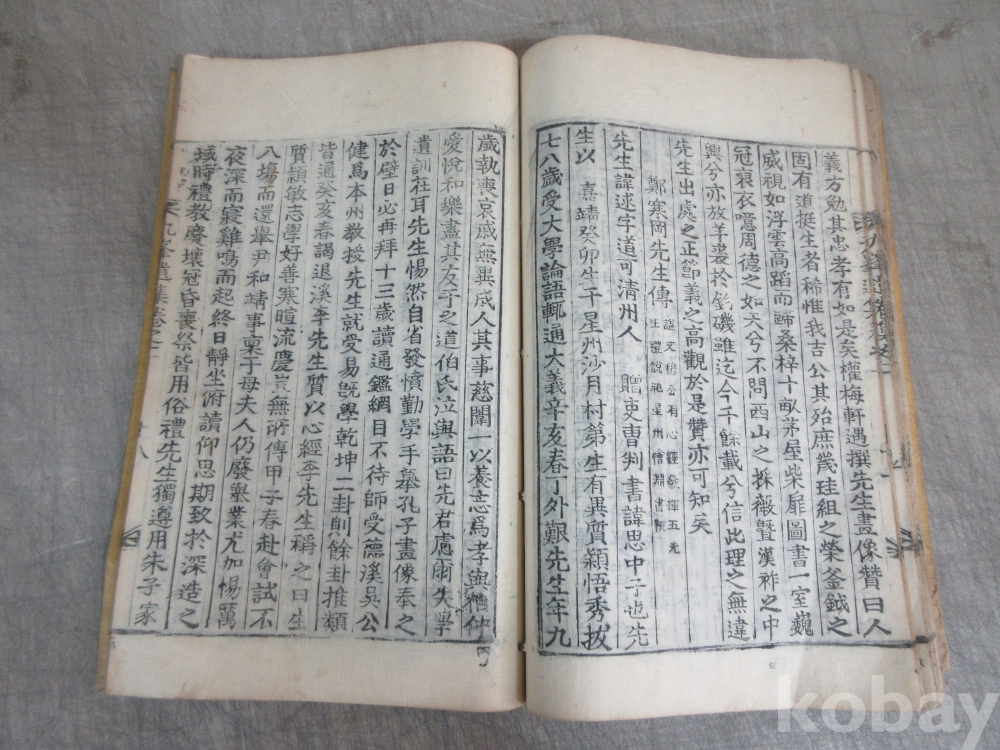 義方勉其忠孝有如是矣權梅軒遇撰先生畫像贊曰人
固有道挺生者稀惟我吉公其殆庶幾珪組之榮釜鉞之
威視如浮雲高蹈而歸桑梓十畝茅屋柴扉圖書一室巍
冠裒衣噫周德之如天兮不問西山之採薇曁漢祚之中
興兮亦放羊裘於釣磯雖迄今千餘載兮信此理之無違
先生出處之正節義之高觀於是贊亦可知矣
鄭寒岡先生傳
謚文穆公有心經發揮五先
生禮說祀星州檜淵書院
先生諱逑字道可淸州人 贈吏曹判書諱思中子也先
生以 嘉靖癸卯生于星州沙月村第生有異質穎悟秀拔
七八歲受大學論語輒通大義辛亥春丁外艱先生年九
歲執喪哀戚無異成人其事慈闈一以養志爲孝與伯仲
愛悅和樂盡其友于之道伯氏泣與語曰先君慮爾失學
遺訓在耳先生惕然自省發憤勤學手摹孔子畫像奉之
於壁日必再拜十三歲讀通鑑綱目不待師受德溪吳公
健爲本州敎授先生就受易旣學乾坤二卦則餘卦推類
皆通癸亥春謁退溪李先生質以心經李先生稱之曰生
質穎敏志學好善寒暄流慶豈無所傳甲子春赴會試不
入塲而還舉尹和靖事稟于母夫人仍廢舉業尤加惕厲
夜深而寐雞鳴而起終日靜坐俯讀仰思期致於深造之
域時禮敎廢壞冠昏喪祭皆用俗禮先生獨遵用朱子家
九峯遺集卷之
十八
kobay